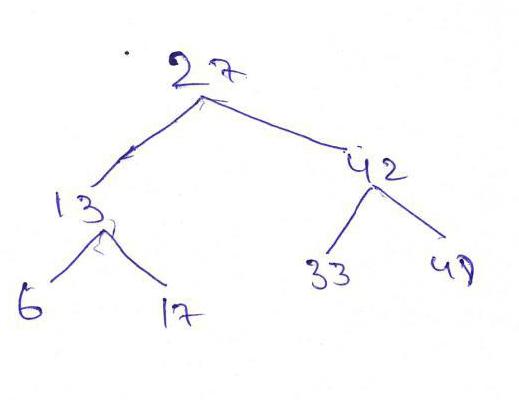 27
13 42
6 17 33 49